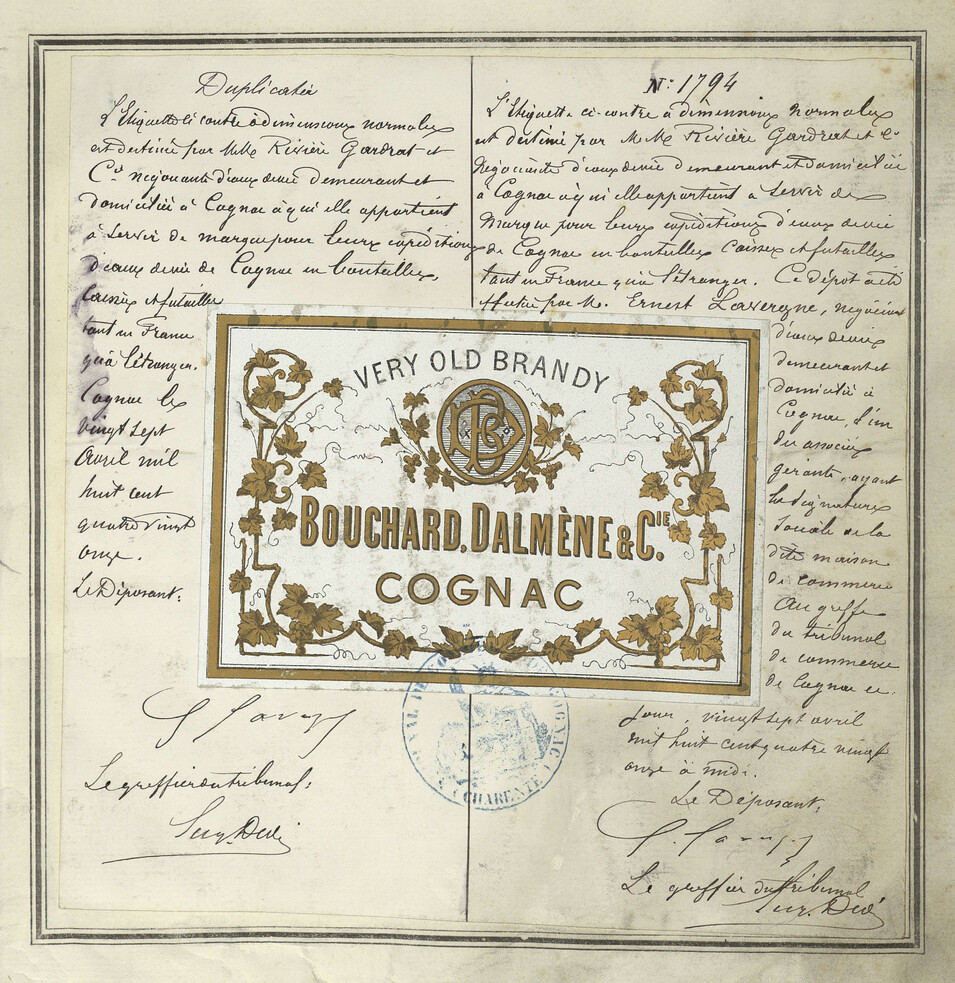 Duplicata
L'Etiquette ci contre à dimensions normales
est destinée par M.Mrs Rivière Gardrat et
Cie négociants d'eaux devie demeurant et
domiciliée à Cognac à qui elle appartient
à servir de marque pour leurs expéditions
d'eaux devie de Cognac en bouteilles,
Caisses et futailles
tant en France
qu'à l'étranger.
Cognac le
vingt sept
avril mil
huit cent
quatre vingt
onze.
Le Déposant:
Le greffier du tribunal:
No: 1794
L'Etiquette ci-contre à dimensions normales
est destinée par M.Mrs Rivière Gardrat et Cie
Négociants d'eaux devie demeurant et domiciliée
à Cognac à qui elle appartient a servir de
Marque pour leurs expéditions d'eaux devie
de Cognac en bouteilles Caisses et futailles
tant en France qu'à l'étranger. Ce dépot a été
effectué par M. Ernest Lavergne, négociant
d'eaux devie
demeurant et
domicilié à
Cognac, l'un
des associés
gérants, ayant
la signature
sociale de la
dite maison
de commerce
au greffe
du tribunal
de commerce
de Cognac ce
jour, vingt sept avril
mil huit cent quatre vingt
onze à midi.
Le Déposant:
Le greffier du tribunal
VERY OLD BRANDY
BOUCHARD, DALMÈNE & CIE.
COGNAC
CHARENTE